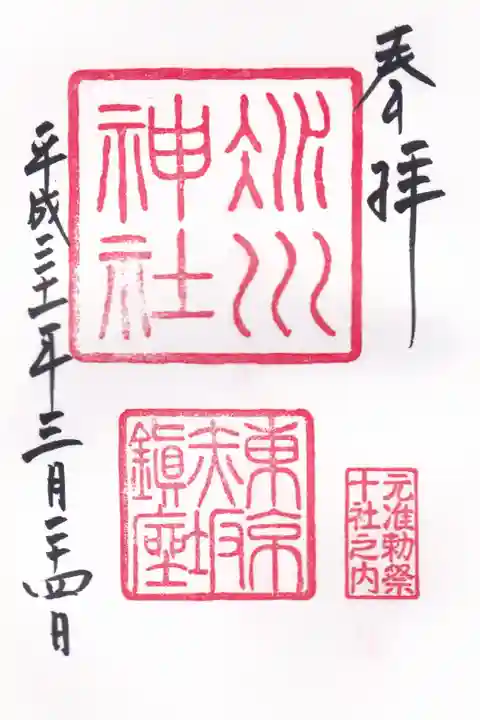 奉拝
氷川
神社
東京
赤坂
鎮座
元准勅祭
十社之内
平成三十一年三月二十四日